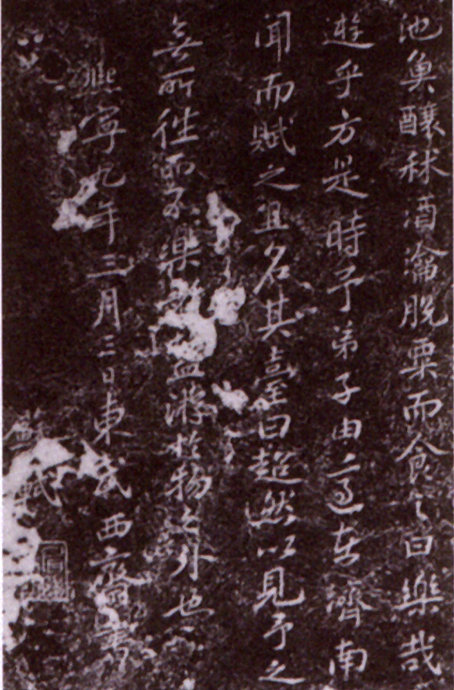 池魚釀秫酒瀹脫粟而食之曰樂哉
遊乎方是時予弟子由適在濟南
聞而賦之且名其臺曰超然以見予之
無所往而不樂者蓋游於物之外也
熙寧九年三月三日東武西齋書
蘇軾